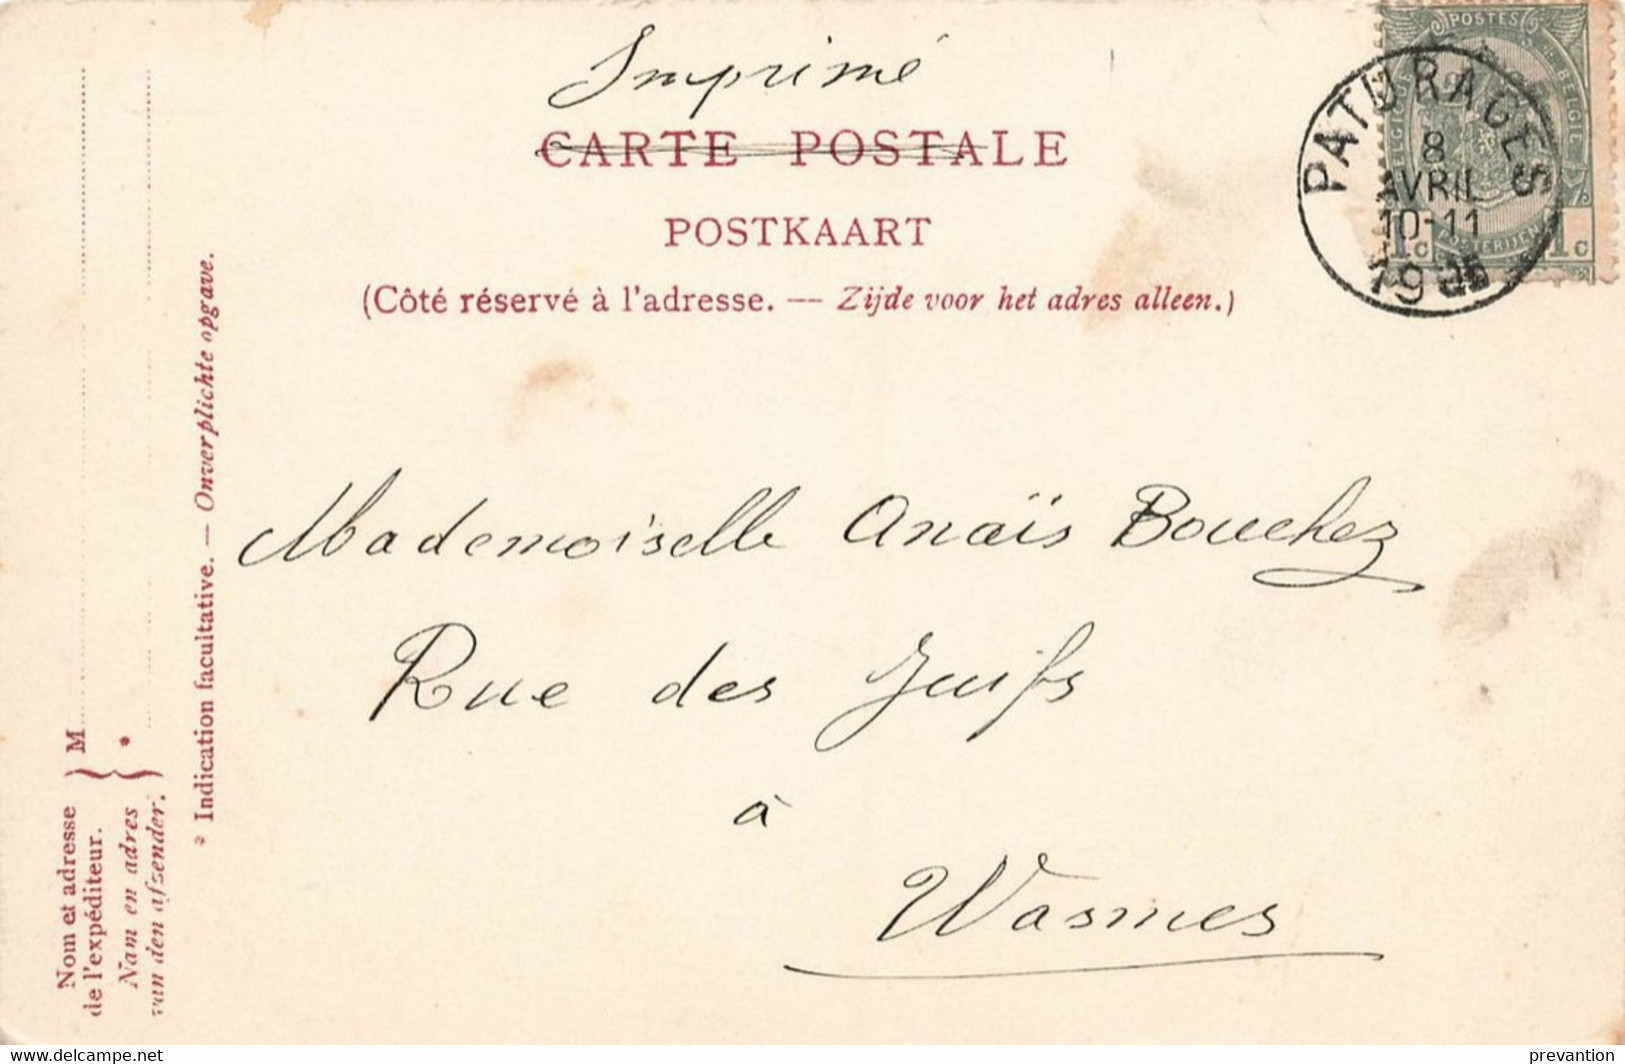 Imprimé
CARTE POSTALE
POSTKAART
(Côté réservé à l'adresse. — Zijde voor het adres alleen.)
POSTES
BELGIQUE
BELGIE
POSTERIJEN
1c 1c
PATURAGES
8
AVRIL
10-11
Mademoiselle Anaïs Bouchez
Rue des Juifs
à
Wasmes
Nom et adresse
de l'expéditeur.
Nam en adres
van den afzender.
M
*
* Indication facultative. — Onverplichte opgave.
www.delcampe.net
prevantion